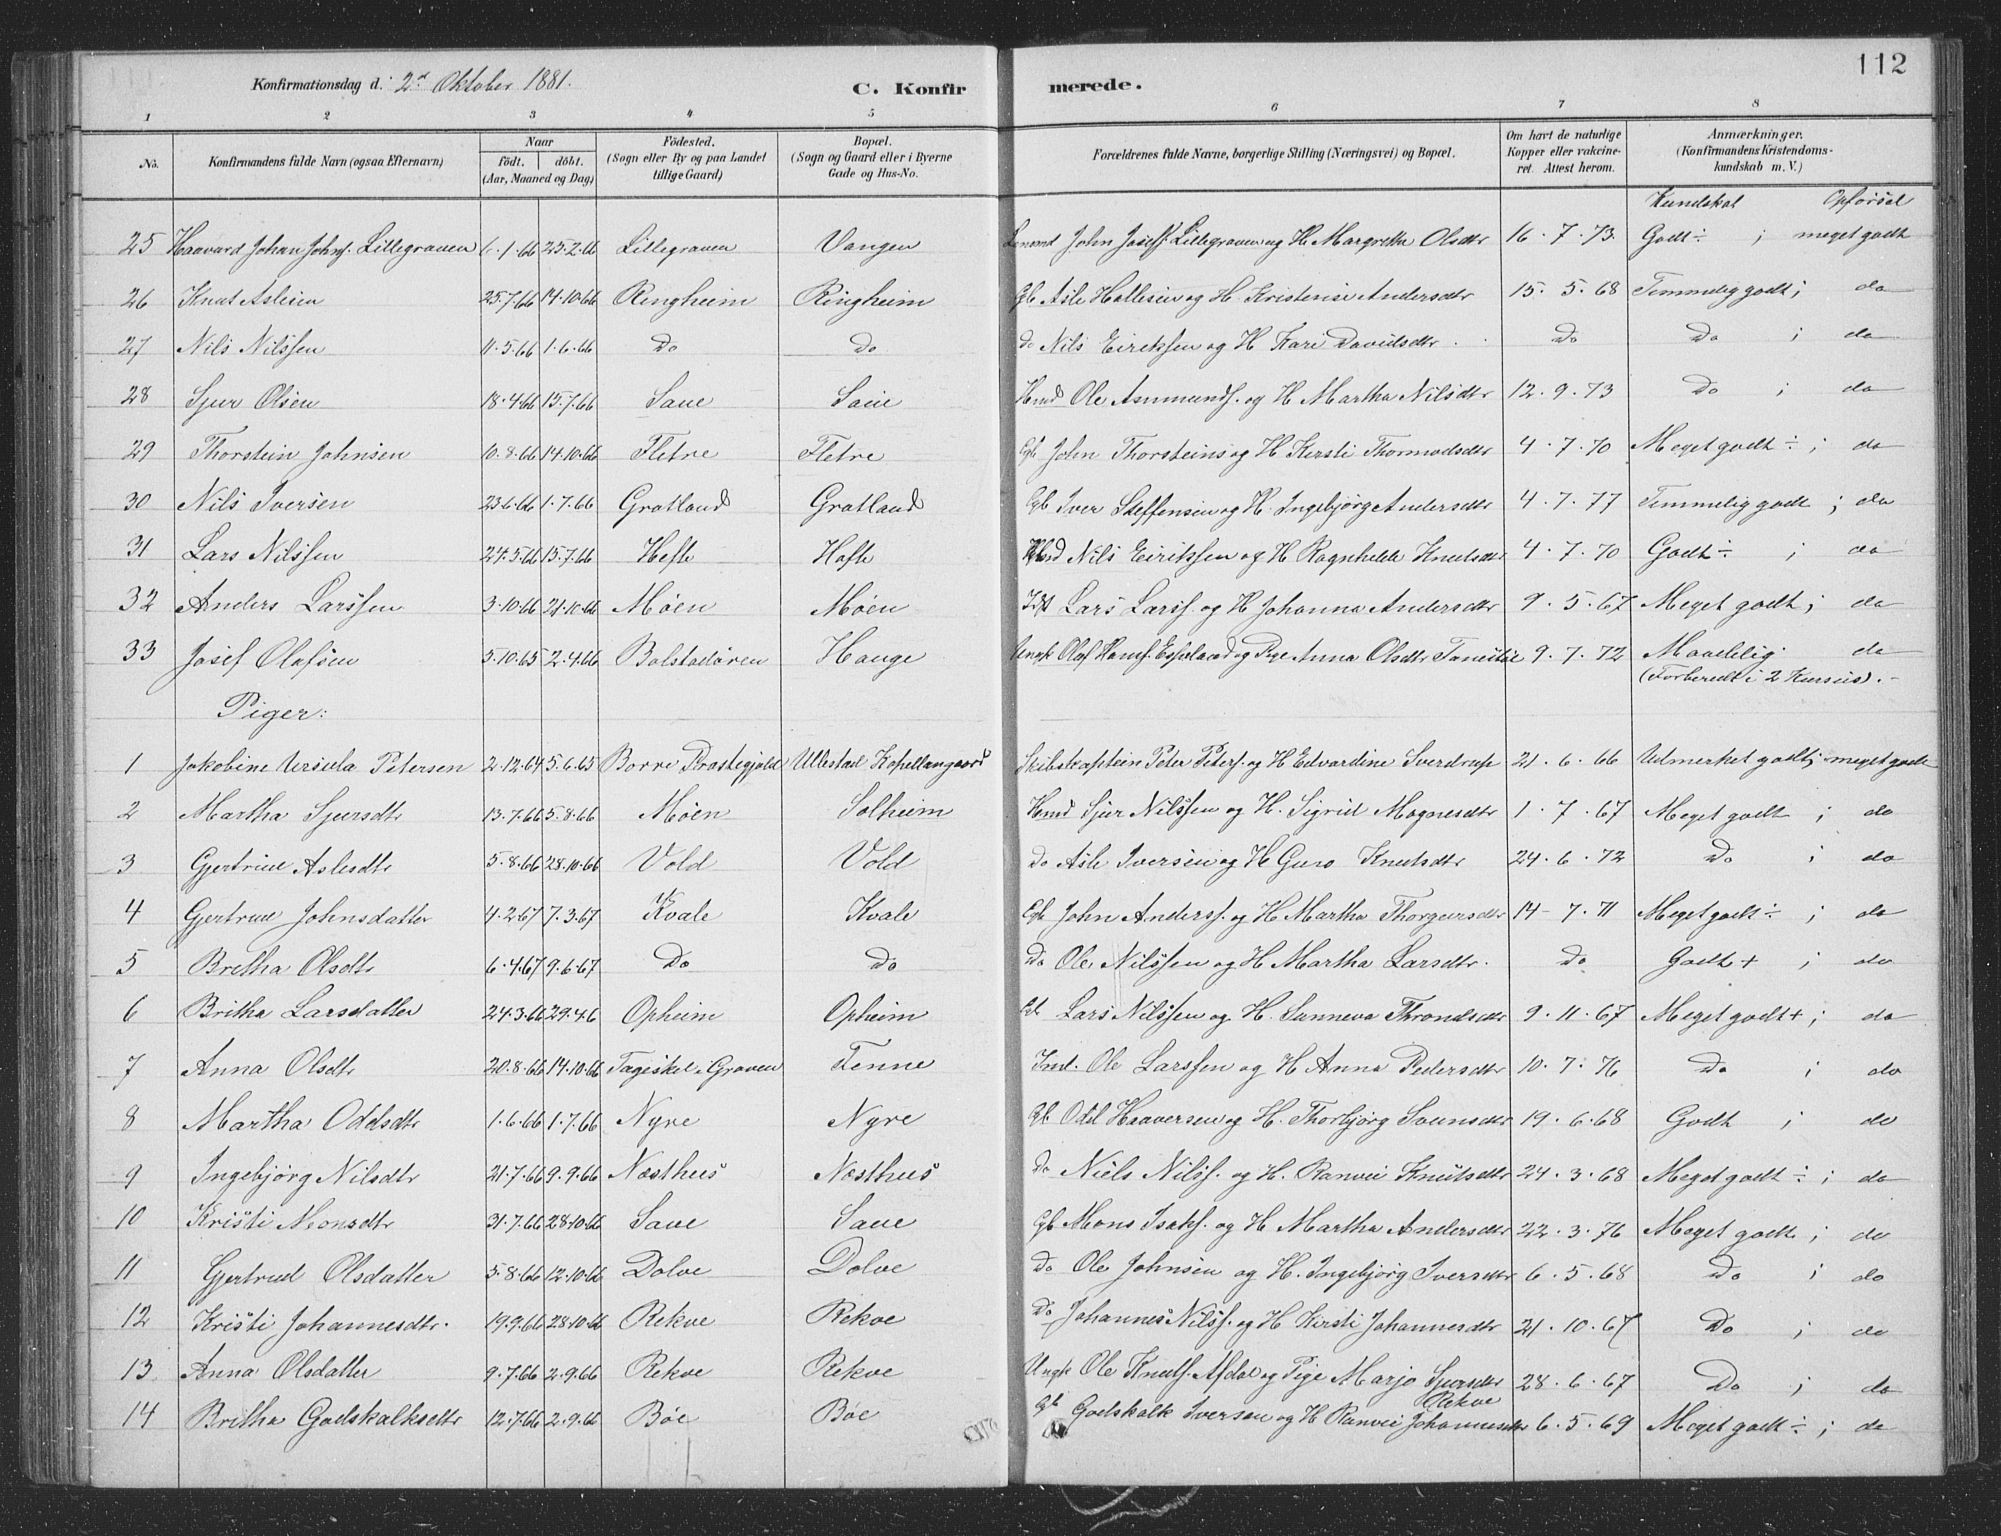 112
Konfirmationsdag d. 2den Oktober 1881.
C. Konfirmerede.
1 2 3 4 5 6 7 8
No. Konfirmandens fulde Navn (ogsaa Efternavn) Naar födt. döbt. (Aar, Maaned og Dag) Födested. (Sogn eller By og paa Landet tillige Gaard) Bopæl. (Sogn og Gaard eller i Byerne Gade og Hus-No. Forældrenes fulde Navne, borgerlige Stilling (Næringsvei) og Bopæl. Om havt de naturlige Kopper eller vakcineret. Attest herom. Anmærkninger. (Konfirmandens Kristendomskundskab m. V.)
Kundskab Opførsel
25 Haavard Johan Johns. Lillegraven 6.1.66 25.2.66 Lillegraven Vangen John Josefs. Lillegraven og H. Margretha Olsdtr 16.7.73 Godt ÷ ; meget godt
26 Knut Aslesen 25.7.66 14.10.66 Ringheim Ringheim Gb Asle Hallesen og H. Kristense Andersdtr 15.5.68 Temmelig godt ; do
27 Nils Nilssen 11.5.66 1.6.66 Do Do do Nils Eirikssen og H Kari Davidsdtr. Do Do ; do
28 Sjur Olsen 18.4.66 15.7.66 Saue Saue Hmd Ole Asmunds. og H Martha Nilsdtr 12.9.73 Do ; do
29 Thorstein Johnsen 10.8.66 14.10.66 Fletre Fletre Gb John Thorsteins og H Kersti Thormodsdtr 4.7.70 Meget godt ÷ ; do
30 Nils Iversen 23.6.66 1.7.66 Grotland Grotland Gb Iver Steffensen og H. Ingebjørg Andersdtr 4.7.77 Temmelig godt ; do
31 Lars Nilssen 24.5.66 15.7.66 Hefte Hefte Hmd Nils Eirikssen og H Ragnhilda Knutsdtr 4.7.70 Godt ÷ ; do
32 Anders Larssen 3.10.66 21.10.66 Möen Möen Lars Larss. og H Johanna Andersdtr 9.5.67 Meget godt ; do
33 Josef Olafsen 5.10.65 2.4.66 Bolstadören Hauge Ungk Olaf Hans. Espeland og Pige Anna Olsdtr 9.7.72 Maadelig. do
(Forberedt i 2 Kursus). -
Piger:
1 Jakobine Ursula Petersen 2.12.64 5.6.65 Borre Præstegjeld Ullestad Kapellangaard Skibskaptein Peter Peters. og H Edvardine Sverdrup 21.6.66 Udmerket godt ; meget godt
2 Martha Sjursdtr 13.7.66 5.8.66 Möen Solheim Hmd Sjur Nilssen og H. Sigrid Magnesdtr 1.7.67 Meget godt ; do
3 Gjertrud Aslesdtr 5.8.66 28.10.66 Vold Vold Do Asle Iversen og H Guro Knutsdtr 24.6.72 Do ; do
4 Gjertrud Johnsdatter 4.2.67 7.3.67 Kvale Kvale Gb John Anderss. og H Martha Thorgeirsdtr 14-7.71 Meget godt ÷ ; do
5 Bretha Olsdtr 6.4.67 9.6.67 Do Do Do Ole Nilssen og H Martha Larsdtr. Do Godt + ; do
6 Britha Larsdatter 24.3.66 29.4.6 Opheim Opheim Gb Lars Nilssen og H. Sunneva Throndsdtr 9.11.67 Meget godt + ; do
7 Anna Olsdtr 20.8.66 14.10.66 Graven Tenne Ind. Ole Larssen og H Anna Pedersdtr 10.7.76 Do ; do
8 Martha Oddsdtr 1.6.66 1.7.66 Nyre Nyre Gb Odd Haaversen og H. Thorbjörg Svensdtr 19.6.68 Godt ; do
9 Ingebjörg Nilsdtr 21.7.66 9.9.66 Næsthus Næsthus Do Niels Nilss. og H. Ranvei Knutsdtr 24.3.68 Meget godt ÷ ; do
10 Kristi Monsdtr 31.7.66 28.10.66 Saue Saue Gb Mons Isaks. og H Martha Andersdtr 22.3.76 Meget godt ; do
11 Gjertrud Olsdatter 5.8.66 12.10.66 Dolve Dolve Do Ole Johnsen og H. Ingebjörg Iversdtr 6.5.68 Do ; do
12 Kristi Johannesdtr. 19.9.66 28.10.66 Rekve Rekve Do Johannes Nilss. og H Kirsti Johannesdtr 21.10.67 Do ; do
13 Anna Olsdatter 9.7.66 2.9.66 Rekve Rekve Ungk Ole Knuts. Afdal og Pige Marjo Sjursdtr Rekve 28.6.67 Do ; do
14 Bretha Godskalksdtr 12.7.66 2.9.66 Böe Böe Gb Godskalk Iversen og H Ranvei Johannesdtr 6.5.69 Meget godt ÷ ; do